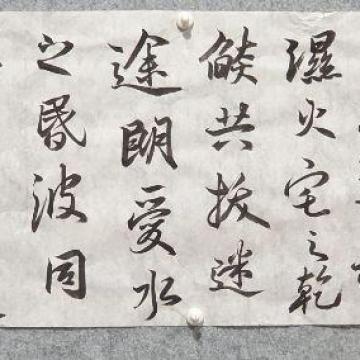 濕火宅之乾
燄共拔迷
途朗愛水
之昬波同